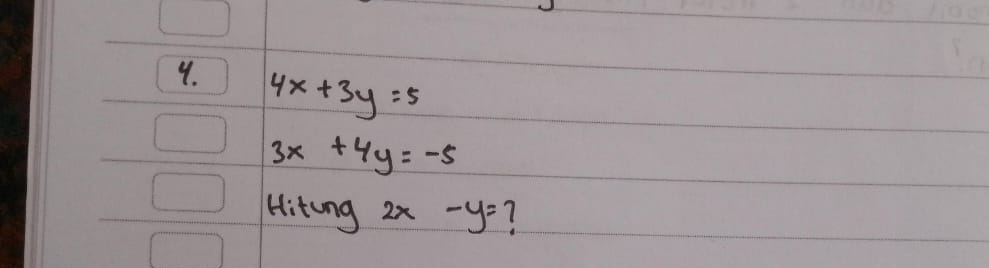 4. 4x + 3y = 5
3x + 4y = -5
Hitung 2x - y = ?